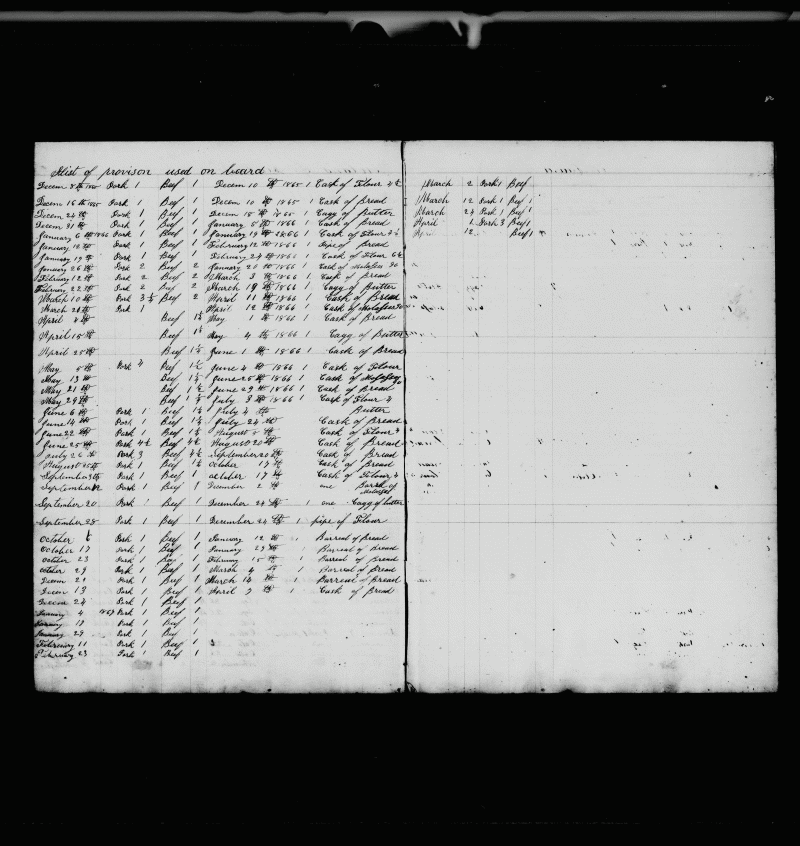 A list of provison used on board
Decem 8th 1865 Pork 1 Beef 1 Decem 10 th 1865 1 Cask of Flour
Decem 16th 1865 Pork 1 Beef 1 Decem 10 th 1865 1 Cask of Bread
Decem 24th Pork 1 Beef 1 Decem 18 th 1865 1 Cagg of Butter
Decem 31th Pork 1 Beef 1 January 5 th 1866 1 Cask of Bread
January 6th 1866 Pork 1 Beef 1 January 19 th 1866 1 Cask of Flour
January 12th Pork 1 Beef 1 February 12 th 1866 1 Pipe of Bread
January 19th Pork 1 Beef 1 February 24 th 1866 1 Cask of Flour
January 26th Pork 2 Beef 2 January 20 th 1866 1 Cask of Molases 30
February 12th Pork 2 Beef 2 March 3 th 1866 1 Cask of Bread
February 22th Pork 2 Beef 2 March 19 th 1866 1 Cagg of Butter
March 10th Pork 3½ Beef 2 March 11 th 1866 1 Cask of Bread
March 21th Pork 1 April 12 th 1866 1 Cask of Molases
April 4th Beef 1½ May 1 th 1866 1 Cask of Bread
April 15th Beef 1½ May 4 th 1866 1 Cagg of Butter
April 25th Beef 1½ June 1 th 1866 1 Cask of Bread
May 5th Pork 4 Beef 1½ June 4 th 1866 1 Cask of Flour
May 13th Beef 1½ June 25th 1866 1 Cask of Molases
May 21th Beef 1½ June 29th 1866 1 Cask of Bread
May 29th Beef 1½ July 3 th 1866 1 Cask of Flour 4
June 6th Pork 1 Beef 1½ July 4 th Butter
June 14th Pork 1 Beef 1½ July 24 th Cask of Bread
June 22th Pork 1 Beef 1½ August 8 th Cask of Flour 4
June 25th Pork 4½ Beef 4½ August 20th Cask of Bread
July 26th Pork 3 Beef 4½ September 20th Cask of Bread
August 25th Pork 1 Beef 1½ October 17 th Cask of Bread
September 3th Pork 1 Beef 1 October 17 th Cask of Flour 4
September 12 Pork 1 Beef 1 December 2 th one Barrel of Molases
September 20 Pork 1 Beef 1 December 24th 1 one Cagg of butter
September 28 Pork 1 Beef 1 December 24 th 1 pipe of Flour
October 6 Pork 1 Beef 1 January 12 th 1 Barreal of Bread
October 17 Pork 1 Beef 1 January 29 th 1 Barreal of Bread
October 23 Pork 1 Beef 1 February 15 th 1 Barreal of Bread
October 29 Pork 1 Beef 1 March 4 th 1 Barreal of Bread
Decem 2 Pork 1 Beef 1 March 14 th 1 Barreal of Bread
Decem 13 Pork 1 Beef 1 April 2 th 1 Cask of Bread
Decem 24 Pork 1 Beef 1
January 4 1867 Pork 1 Beef 1
January 18 Pork 1 Beef 1
January 29 Pork 1 Beef 1
February 11 Pork 1 Beef 1
February 23 Pork 1 Beef 1
March 2 Pork 1 Beef
March 12 Pork 1 Beef 1
March 24 Pork 1 Beef 1
April Pork 3 Beef 1
April 12 Beef 1